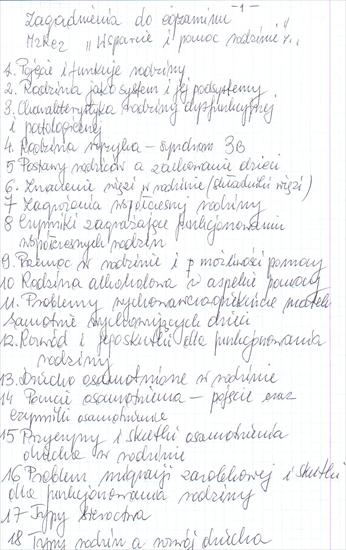 Zagadnienia do egzaminu -1-
"Wsparcie i pomoc rodzinie".
1. Pojęcie i funkcje rodziny
2. Rodzina jako system i jej podsystemy
3. Charakterystyka rodziny dysfunkcyjnej
i patologicznej
4. Rodzina ryzyka - syndrom 3B
5 Postawy rodziców a zachowanie dzieci
6. Znaczenie więzi w rodzinie (składniki więzi)
7 Zagrożenia współczesnej rodziny
8 Czynniki zagrażające funkcjonowaniu
współczesnych rodzin
9. Przemoc w rodzinie i możliwości pomocy
10 Rodzina alkoholowa w aspekcie pomocy
11. Problemy wychowawczo-opiekuńcze matek
samotnie wychowujących dzieci
12. Rozwód i jego skutki dla funkcjonowania
rodziny
13. Dziecko osamotnione w rodzinie
14 osamotnienia - pojęcie oraz
czynniki osamotnienia
15 Przyczyny i skutki osamotnienia
dziecka w rodzinie
16 Problem migracji zarobkowej i skutki
dla funkcjonowania rodziny
17 Typy sieroctwa
18 Typy rodzin a rozwój dziecka